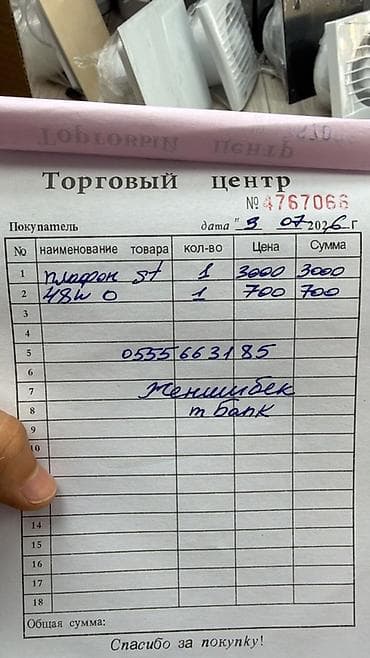 Торговый центр
Торговый центр
№ 4767066
Покупатель дата " 9 07 2026 г
No наименование товара кол-во Цена Сумма
1 плафон St 1 3000 3000
2 48w О 1 700 700
3
4
5 0555 663185
6
7 Женишбек
8 т банк
9
10
14
15
16
17
18
Общая сумма:
Спасибо за покупку!